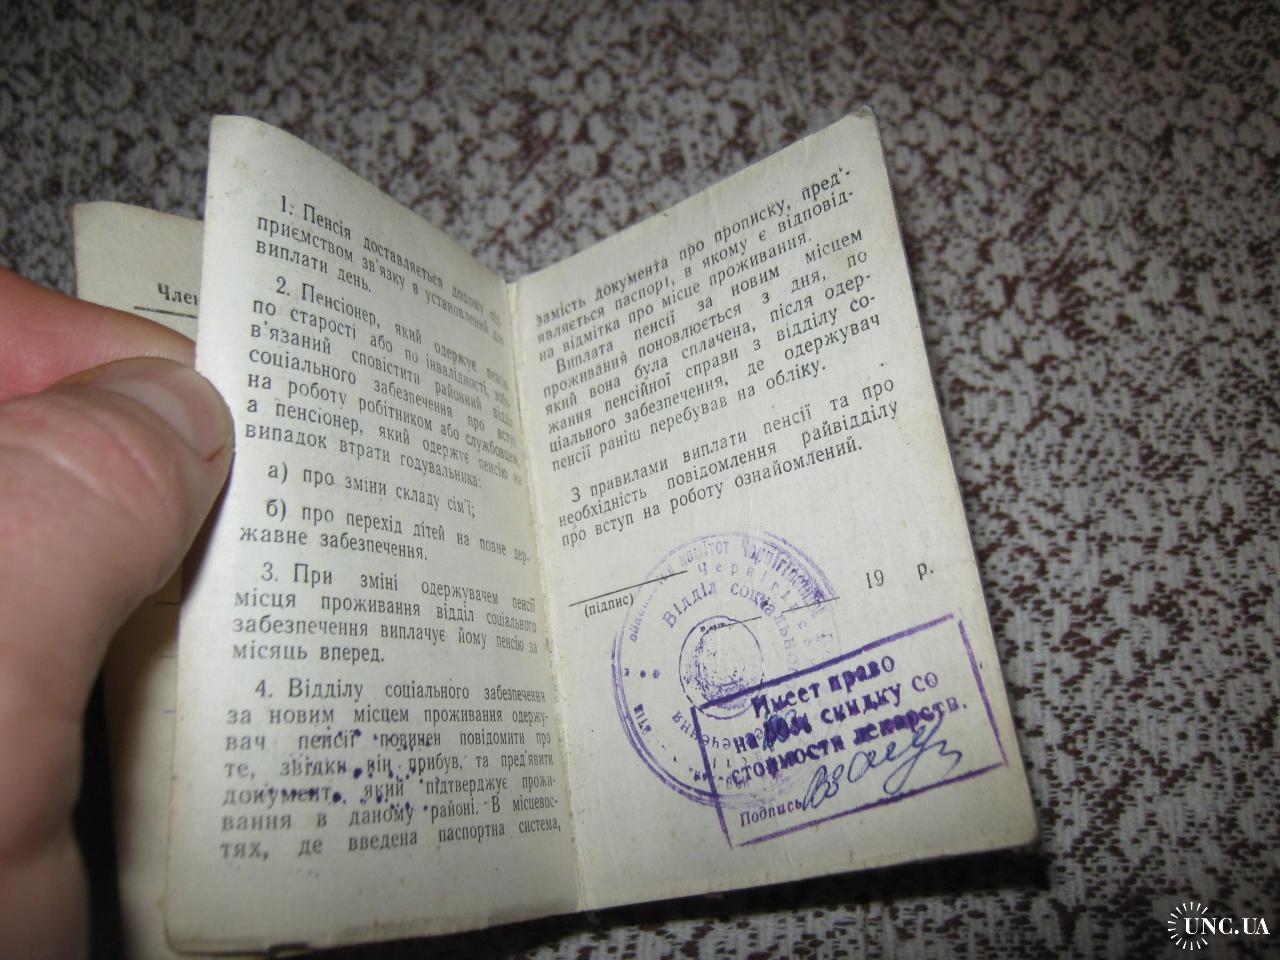 Член
1. Пенсія доставляється додому під-
приємством зв'язку в установлений для
виплати день.
2. Пенсіонер, який одержує пенсію
по старості або по інвалідності, зобо-
в'язаний сповістити районний відділ
соціального забезпечення про вступ
на роботу робітником або службовцем,
а пенсіонер, який одержує пенсію на
випадок втрати годувальника:
а) про зміни складу сім'ї;
б) про перехід дітей на повне дер-
жавне забезпечення.
3. При зміні одержувачем пенсії
місця проживання відділ соціального
забезпечення виплачує йому пенсію за
місяць вперед.
4. Відділу соціального забезпечення
за новим місцем проживання одержу-
вач пенсії повинен повідомити про
те, звідки він прибув, та пред'явити
документ, який підтверджує прожи-
вання в даному районі. В місцевос-
тях, де введена паспортна система,
замість документа про прописку, пред'-
являється паспорт, в якому є відповід-
на відмітка про місце проживання.
Виплата пенсії за новим місцем
проживання поновлюється з дня, по
який вона була сплачена, після одер-
жання пенсійної справи з відділу со-
ціального забезпечення, де одержувач
пенсії раніш перебував на обліку.
З правилами виплати пенсії та про
необхідність повідомлення райвідділу
про вступ на роботу ознайомлений.
19 р.
(підпис)
комітет
Відділ соціального
Имеет право
на скидку со
стоимости лекарств.
Подпись
UNC.UA